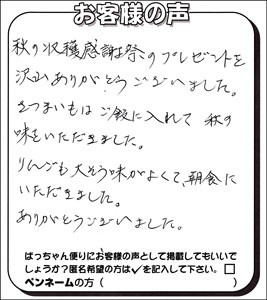 お客様の声
秋の収穫感謝祭のプレゼントを
沢山ありがとうございました。
さつまいもはご飯に入れて 秋の
味をいただきました。
りんごも大そう味がよくて、朝食に
いただきました。
ありがとうございました。
ばっちゃん便りにお客様の声として掲載してもいいで
しょうか？匿名希望の方は✓を記入して下さい。□
ペンネームの方（　　　　　　　　）